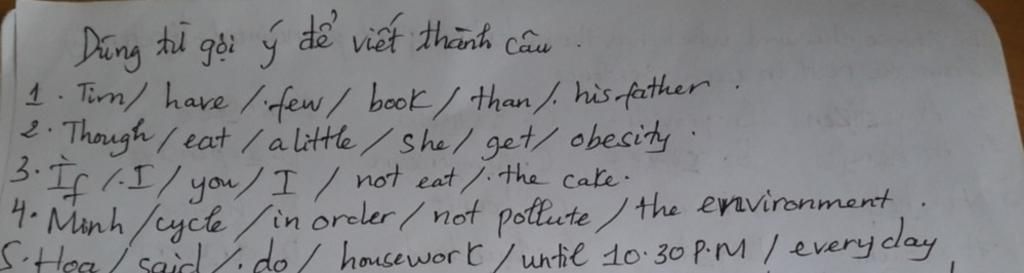 Dùng từ gợi ý để viết thành câu.
1. Tim / have / few / book / than / his father.
2. Though / eat / a little / she / get / obesity.
3. If / I / you / I / not eat / the cake.
4. Minh / cycle / in order / not pollute / the environment.
5. Hoa / said / do / housework / until 10.30 P.M / every day